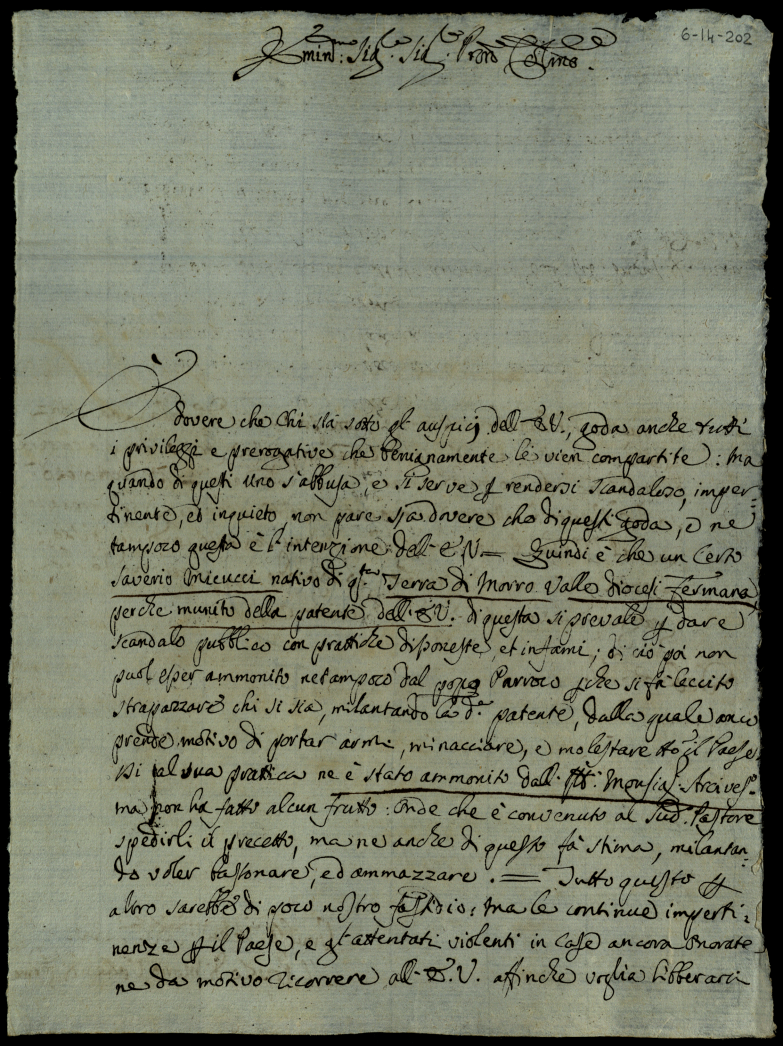 6-14-202
Emin: Sig. Sig. Prōn
È dovere che Chi stà sotto gl' auspicj dell' E.V., goda anche tutti
i privileggi e prerogative che benignamente le vien compartite: Ma
quando di questi uno s'abbusa, e si serve p rendersi scandaloso, imper-
tinente, ed inquieto, non pare sia dovere che di questi goda, e ne
tampoco questa è l'intenzione dell' E.V. — Quindi è che un Certo
Saverio Micucci nativo di q.ta Terra di Morro Valle Diocesi Fermana
perche munito della patente dell' E.V. di questa si prevale p dare
scandalo pubblico con prattiche disponeste, et infami; di ciò poi non
puol esser ammonito netampoco dal Parroco pche si fà leccito
strapazzare chi si sia, milantando la d.a patente, dalla quale anco
prende motivo di portar arme, minacciare, e molestare tt.o il Paese.
Di tal sua prattica ne è stato ammonito dall' Monsig. Arcives.o
ma non ha fatto alcun frutto: onde che è convenuto al Sud. Pastore
spedirli il precetto, ma ne anche di questo fà stima, milantan-
do voler bastonare, ed ammazzare. — Tutto questo p
altro sarebbe di poco nostro fastidio: Ma le continue imperti:
nenze p il Paese, e gl'attentati violenti in Case ancora onorate
ne da motivo ricorrere all' E.V. affinche voglia libberarci